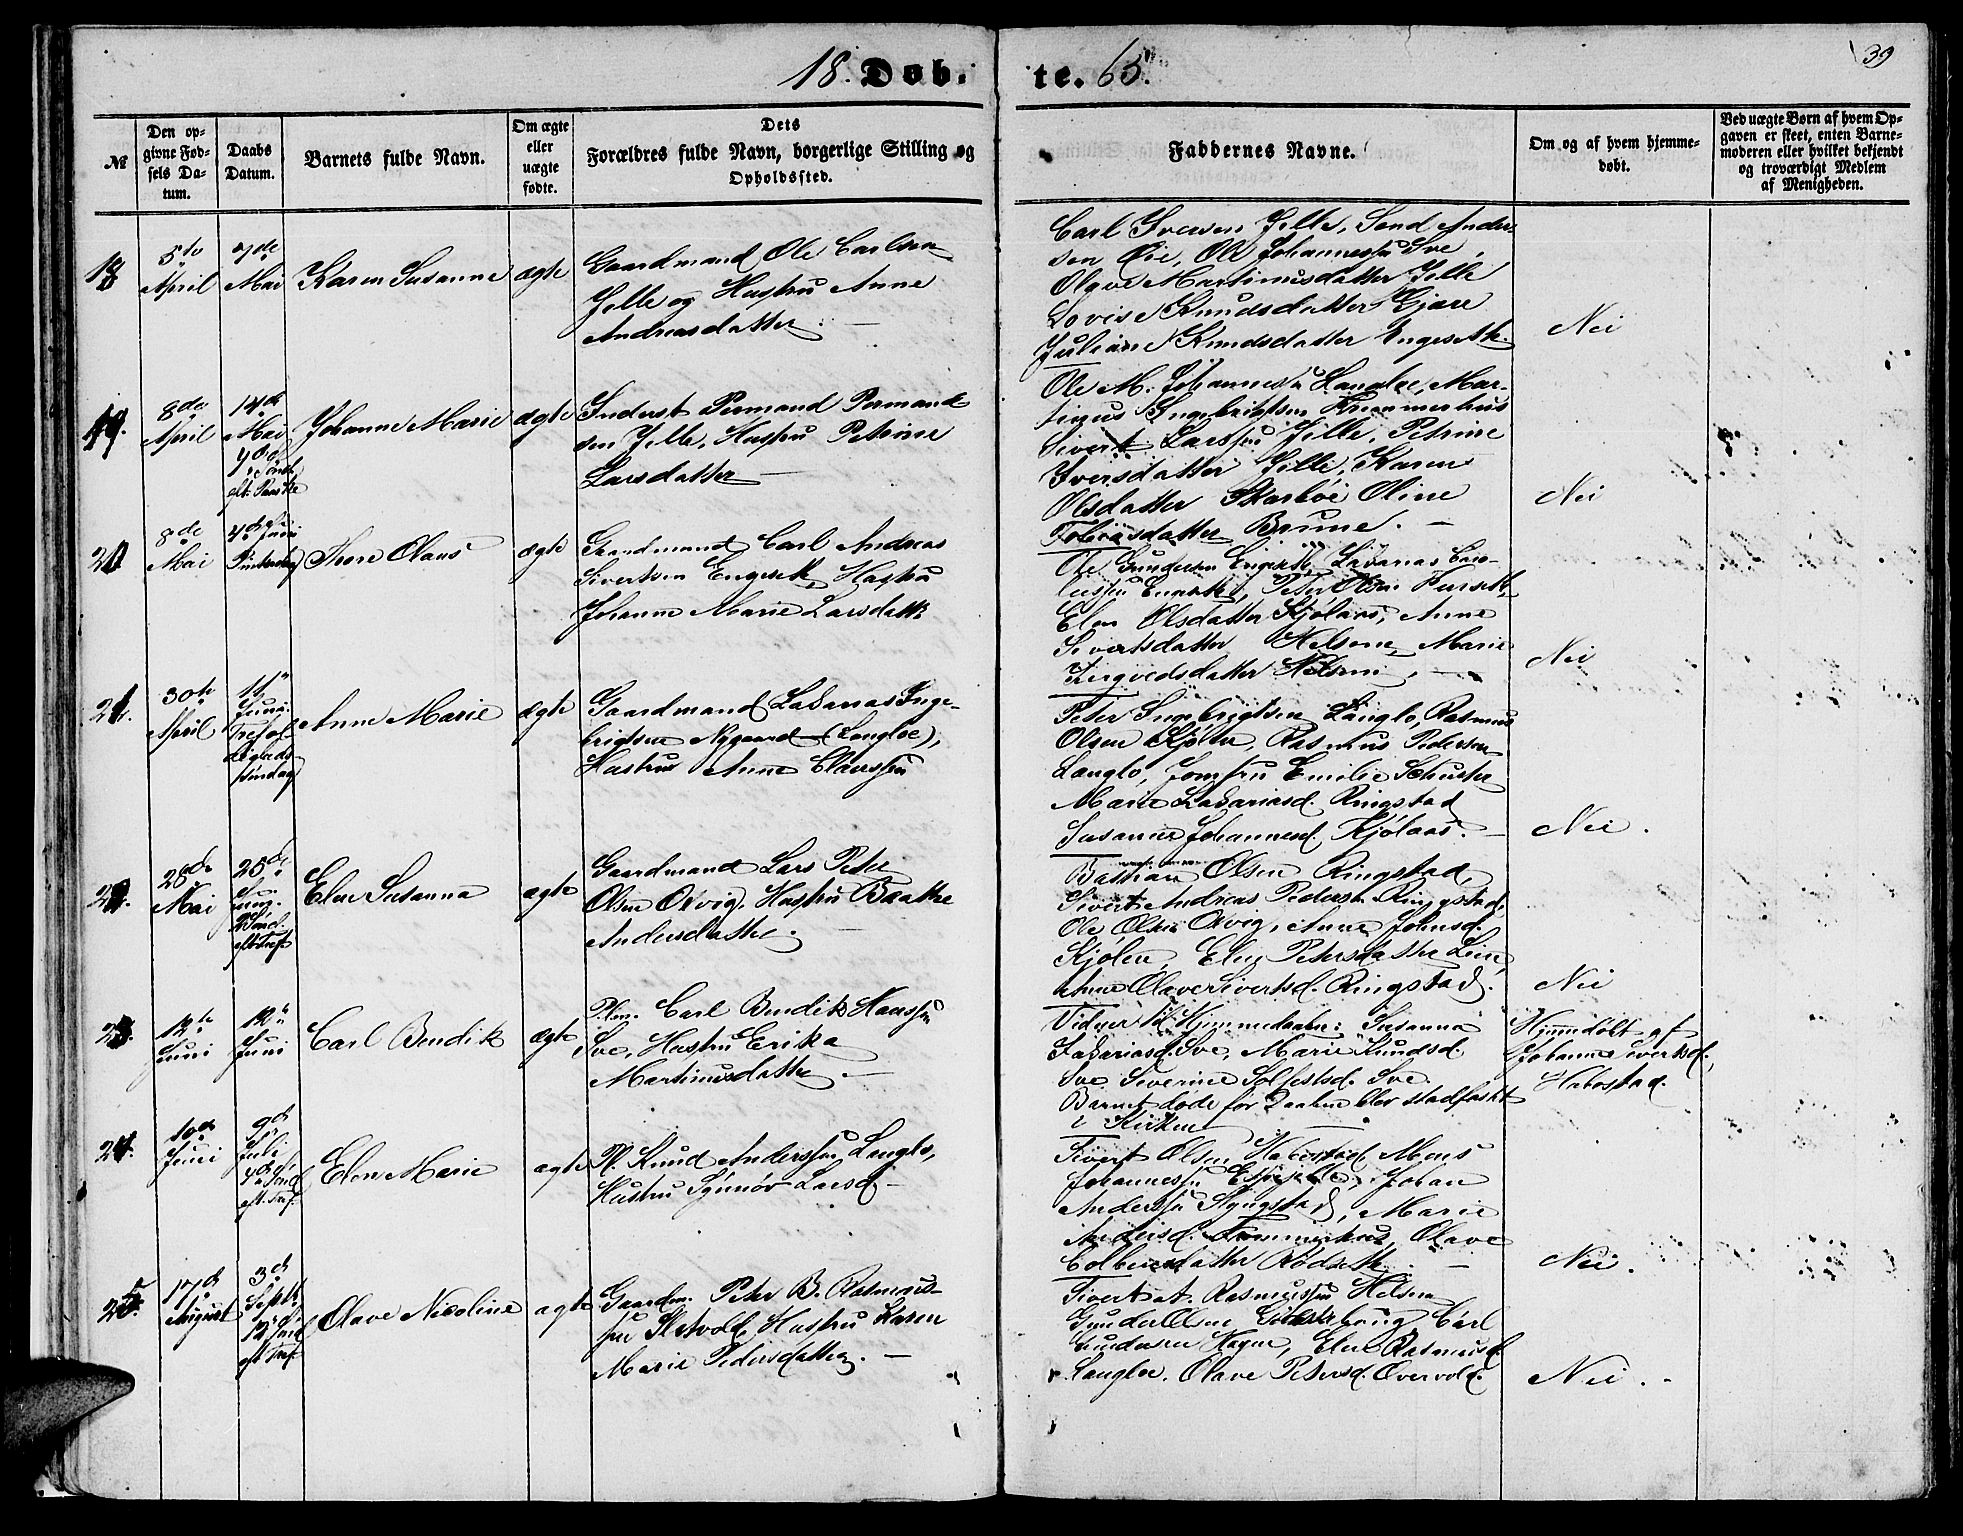 39
18. Døb. te. 65.
№
Den opgivne Fødsels Datum.
Daabs Datum.
Barnets fulde Navn.
Om ægte eller uægte fødte.
Dets Forældres fulde Navn, borgerlige Stilling og Opholdssted.
Faddernes Navne.
Om og af hvem hjemmedøbt.
Ved uægte Børn af hvem Opgaven er skeet, enten Barnemoderen eller hvilket bekjendt og troværdigt Medlem af Menigheden.
18
5te April
7de Mai
Karen Susanne
ægte
Gaardmand Ole Carlsen
Jelle og Hustru Anne
Andreasdatter.
Carl Iversen Jelle, Send Ander
sen Øie, Ole Johannessen Sve,
Olave Martinusdatter Jelle
Lovise Knudsdatter Gjære
Juliane Knudsdatter Engeseth.
Nei
19.
8de April
14de Mai
4de Sønd.
eft. Paaske
Johanne Marie
ægte
Inderst Permand Permand
sen Jelle, Hustru Petrine
Larsdatter
Ole M. Johannessen Langloe, Mar-
tinus Ingebrigtsen
Sivert Larssen Jelle, Petrine
Iversdatter Jelle, Karen
Olsdatter Skarbøe Oline
Tobiasdatter Brune.
Nei
20
8de Mai
4de Juni
Pintsedag
Thore Olaus
ægte
Gaardmand Carl Andreas
Sivertsen Engeseth, Hustru
Johanne Marie Larsdatt.
Ole Gundersen Engeseth, Lasarias Caro-
liussen Engeseth, Peter Olsen Furseth,
Elen Olsdatter Kjølaas, Anne
Sivertsdatter Helsem, Marie
Helsem.
Nei
21.
30te April
11te Juni
Trefol
digheds
søndag
Anne Marie
ægte
Gaardmand Lasarias Inge-
brigtsen Nygaard (Langloe),
Hustru Anne Claussen
Peter Ingebrigtsen Langlo, Rasmus
Olsen Kjølen, Rasmus Pedersen
Langlo, Jomfru Emilie Schuster
Marie Lasariasd. Ringstad
Susanne Johannesd. Kjølaas.
Nei.
22.
28de Mai
25de Juni
2 Sønd.
eft Tref.
Elen Susanna
ægte
Gaardmand Lars Peter
Olsen Overvig, Hustru Baathe
Andersdatter.
Bastian Olsen Ringstad,
Sivert Andreas Peders. Ringstad,
Ole Olsen Overvig, Anne Johnsd.
Kjølen, Elen Petersdatter Leen,
Anne Olave Sivertsd. Ringstad.
Nei
23.
12te Juni
12te Juni
Carl Bendik
ægte
Carl Bendik Hanssen
Sve, Hustru Erika
Martinusdatter.
Vidner til Hjemmedaaben: Susanna
Lasariasd. Sve, Marie Knudsd.
Sve Severine Solfestsd. Sve.
Barnet døde før Daaben blev stadfæstet
i Kirken
Hjemdøbt af
Johanne Sivertsd.
Habostad.
24.
10de Juni
9de Juli
4de Sønd.
eft. Tref.
Elen Marie
ægte
Pl. Knud Anderssen Langlo,
Hustru Synnøv Larsd.
Sivert Olsen Habostad Mons
Johannessen Johan
Anderssen Ringstad, Marie
Andersd. Olave
Colbensdatter Rødseth.
Nei.
25.
17de August
3de Septbr.
12 Sønd
eft. Tref.
Olave Nicoline
ægte
Gaardm. Peter B. Rasmus-
sen Sletvold, Hustru Karen
Marie Pedersdatter.
Sivert A. Rasmussen Helsem
Gunder Olsen Carl
Gundersen Hagen, Elen Rasmusd.
Langloe. Olave Petersd. Overvold.
Nei.